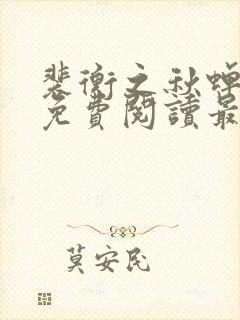 裴衡之秋蟬
免費閱讀最
莫安民